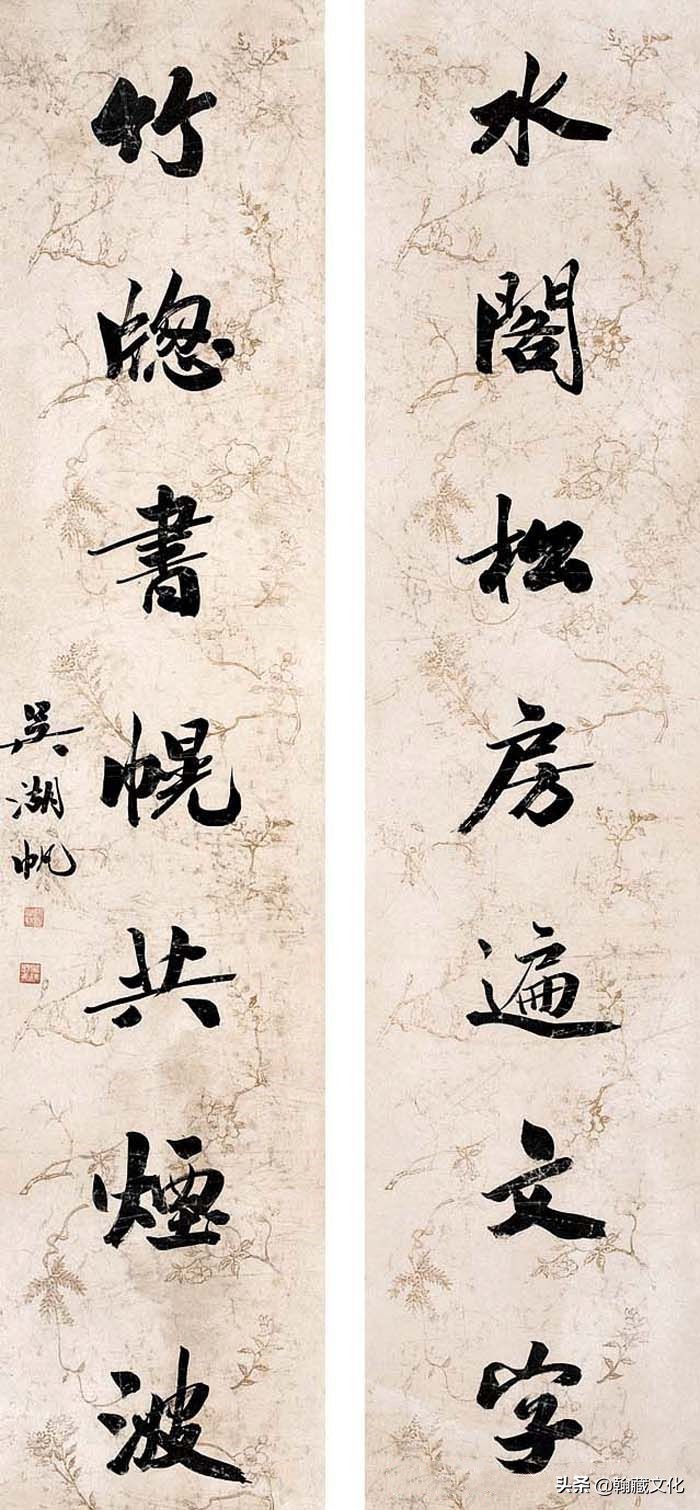 水閣松房遍文字
竹牕書幌共煙波
吳湖帆
头条 @翰藏文化